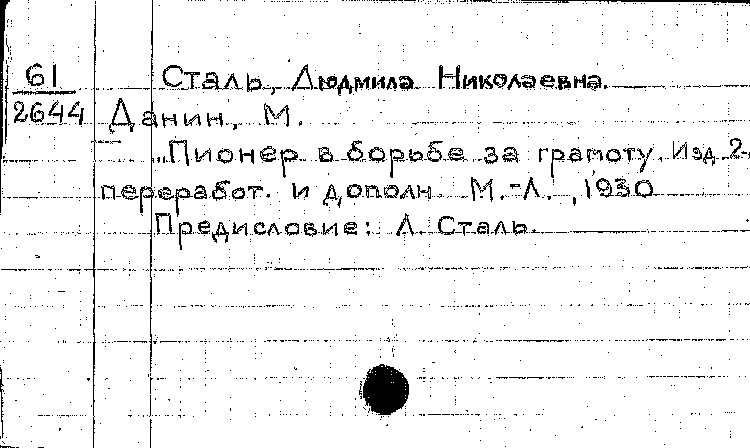 61 Сталь, Людмила Николаевна.
2644 Данин, М.
"Пионер в борьбе за грамоту. Изд. 2-
переработ. и дополн. М.-Л., 1930
Предисловие: Л. Сталь.